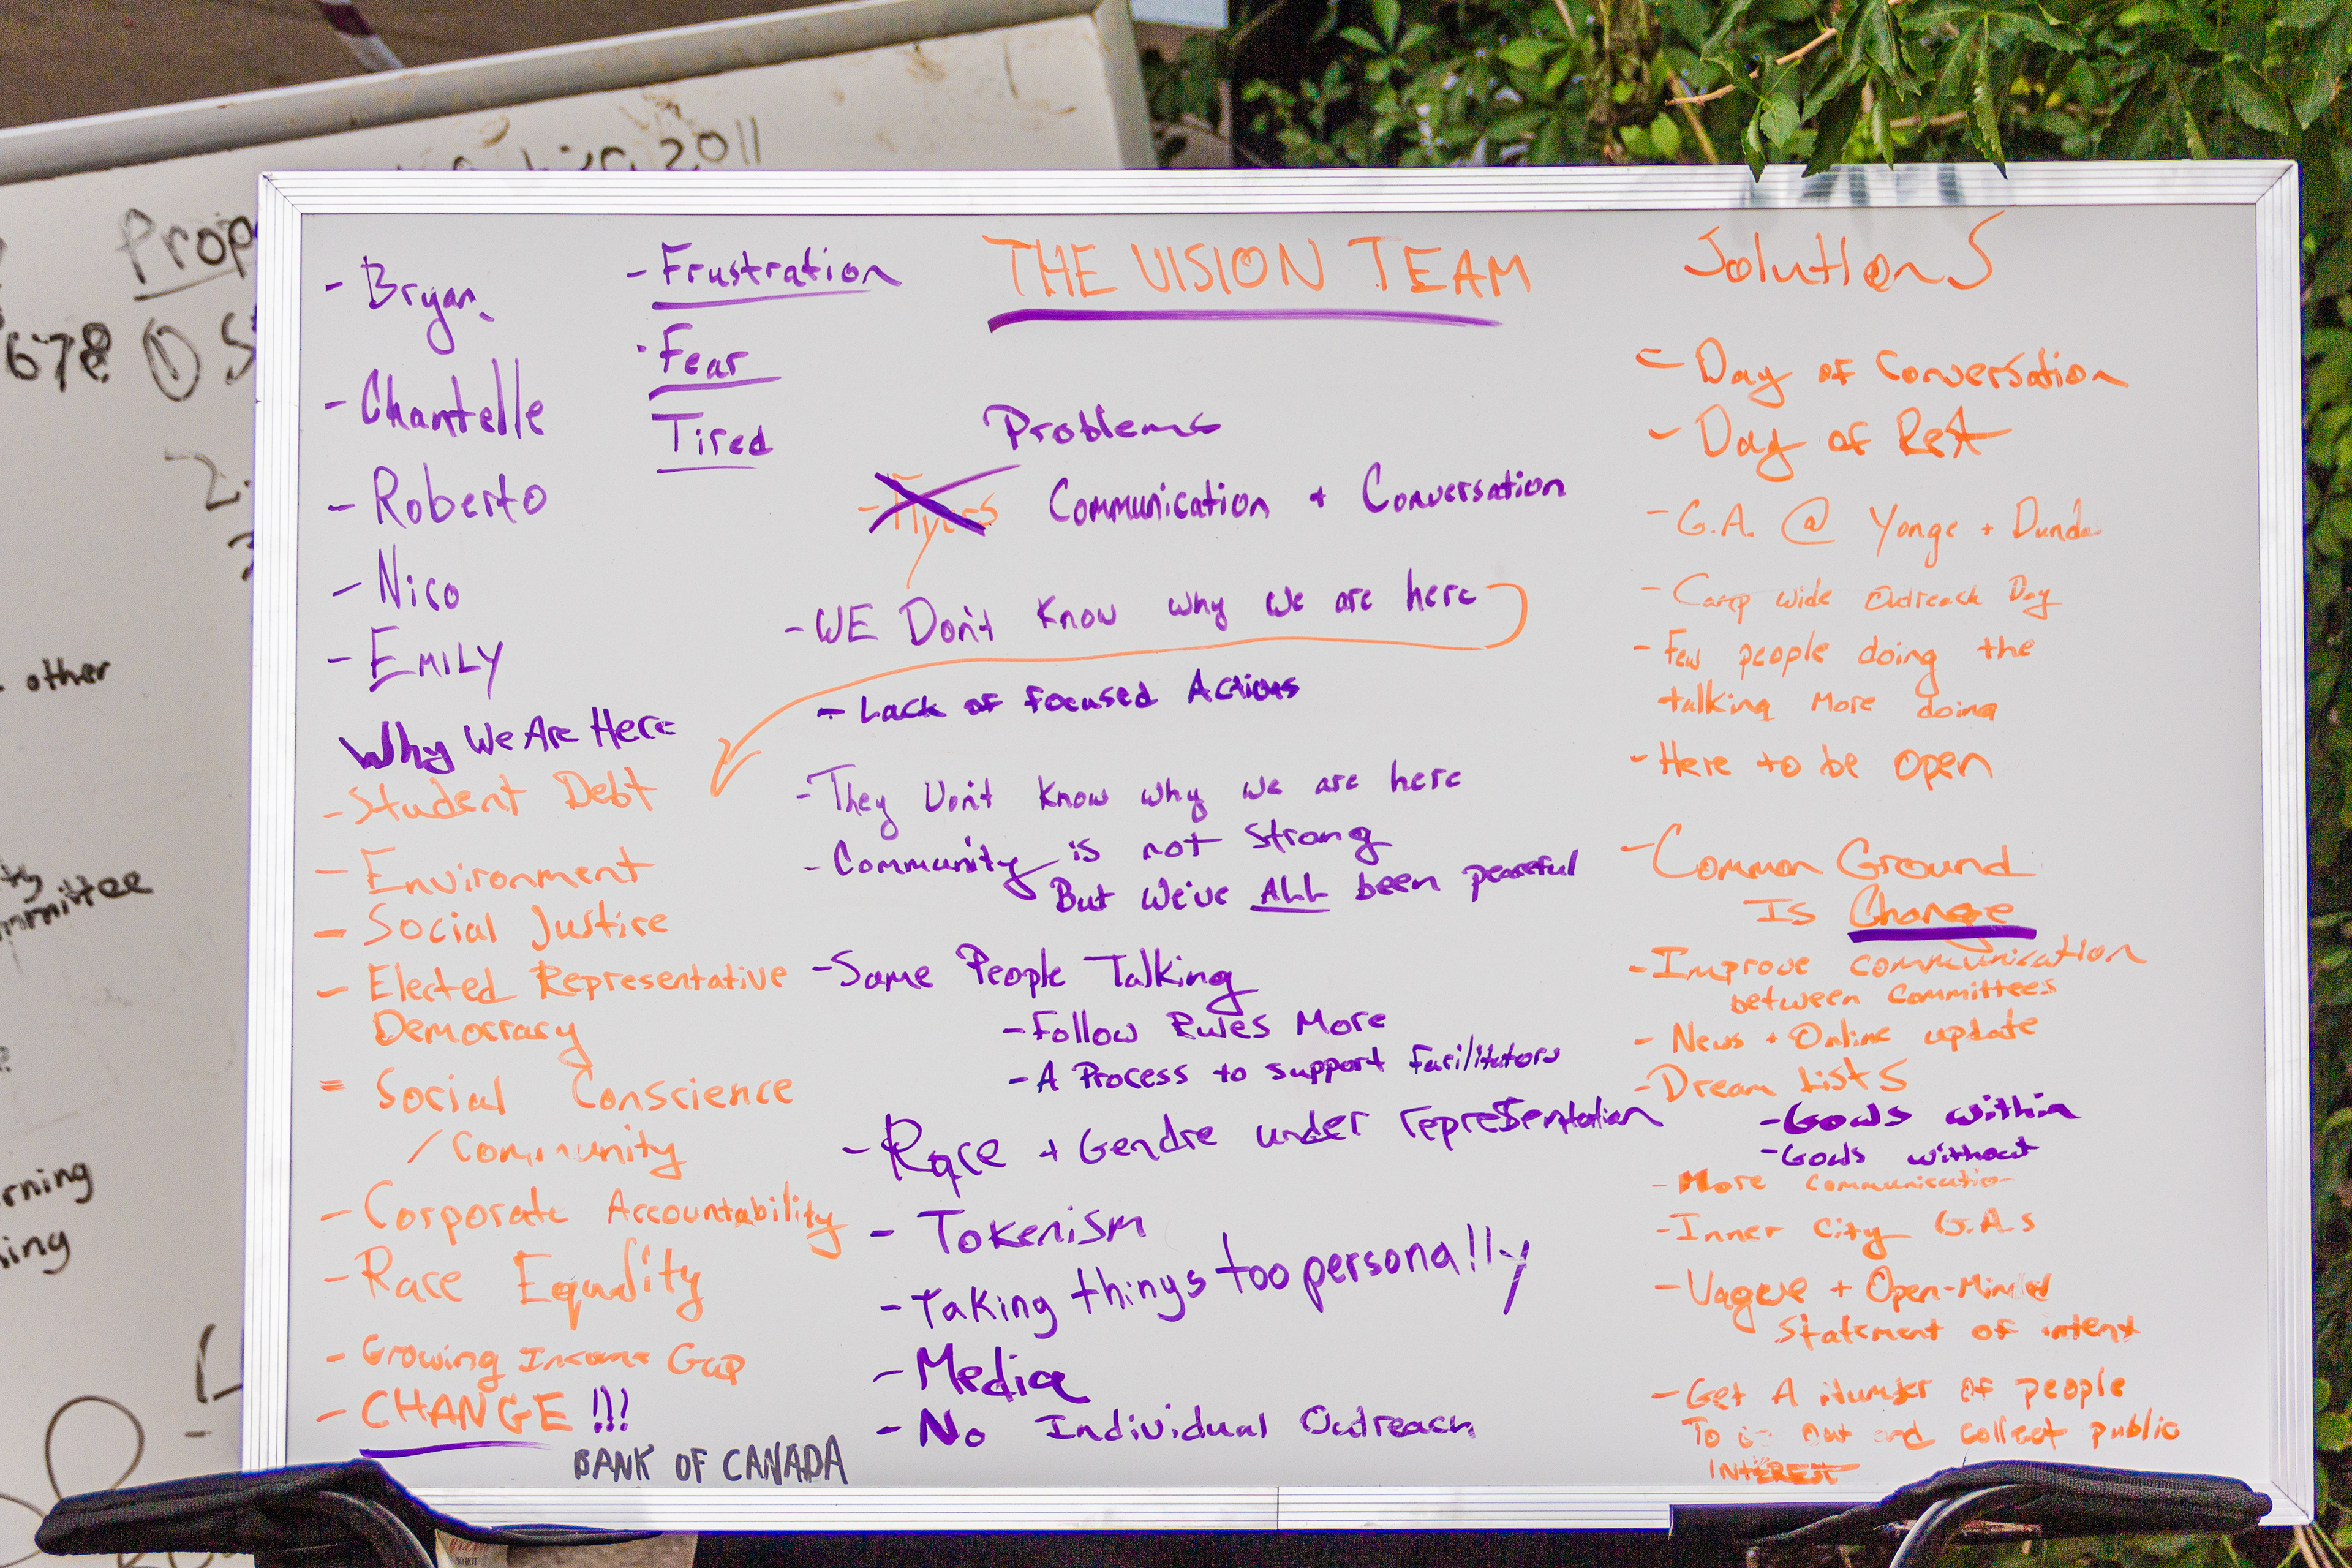 2011
Prop
678 ① S
2.
3
other
mmittee
rning
THE VISION TEAM
- Bryan
- Chantelle
- Roberto
- Nico
- EMILY
- Frustration
- Fear
Tired
Why We Are Here
- Student Debt
- Environment
- Social Justice
- Elected Representative
Democracy
- Social Conscience
/ Community
- Corporate Accountability
- Race Equality
- Growing Income Gap
- CHANGE !!!
BANK OF CANADA
Problems
- Flyers Communication + Conversation
- WE Don't Know why we are here
- Lack of focused Actions
- They Don't Know why we are here
- Community is not strong
But we've ALL been peaceful
- Same People Talking
- Follow Rules More
- A Process to support Facilitators
- Race + Gendre under representation
- Tokenism
- Taking things too personally
- Media
- No Individual Outreach
Solutions
- Day of Conversation
- Day of Rest
- G.A. @ Yonge + Dundas
- Camp wide Outreach Day
- Few people doing the
talking More doing
- Here to be open
- Common Ground
Is Change
- Improve communication
between Committees
- News + Online update
- Dream Lists
- Goals within
- Goals without
- More communication
- Inner City G.A.s
- Vague + Open-Minded
Statement of intent
- Get A Number of people
To out and collect public
INTEREST